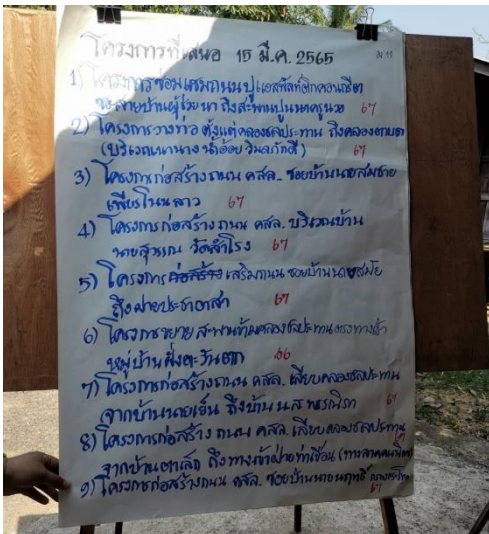 โครงการที่เสนอ 15 มี.ค. 2565
1) โครงการซ่อมแซมถนนปูแอสฟัลท์ติกคอนกรีต
สายบ้านผู้ช่วยนา ถึงสะพานปูนนาครูนวย 67
2) โครงการวางท่อ ตั้งแต่คลองชลประทาน ถึงคลองตาบอด
(บริเวณนานาง น้ำอ้อย วิมลภักดี) 67
3) โครงการก่อสร้างถนน คสล. ซอยบ้านนายสมชาย
เพียรโนนลาว 67
4) โครงการก่อสร้างถนน คสล. บริเวณบ้าน
นายสุวรรณ วัดสำโรง 67
5) โครงการก่อสร้างเสริมถนน ซอยบ้านนายสมัย
ถึงฝายประชาอาสา 67
6) โครงการขยายสะพานข้ามคลองชลประทานตรงทางเข้า
หมู่บ้านฝั่งตะวันตก 66
7) โครงการก่อสร้างถนน คสล. เลียบคลองชลประทาน
จากบ้านนายเย็น ถึงบ้าน น.ส. พรรณิภา 67
8) โครงการก่อสร้าง ถนน คสล. เลียบคลองชลประทาน 67
จากบ้านตาเล็ก ถึงทางเข้าฝายท่าเขื่อน
9) โครงการก่อสร้างถนน คสล. ซอยบ้านนายนฤทธิ์ 67